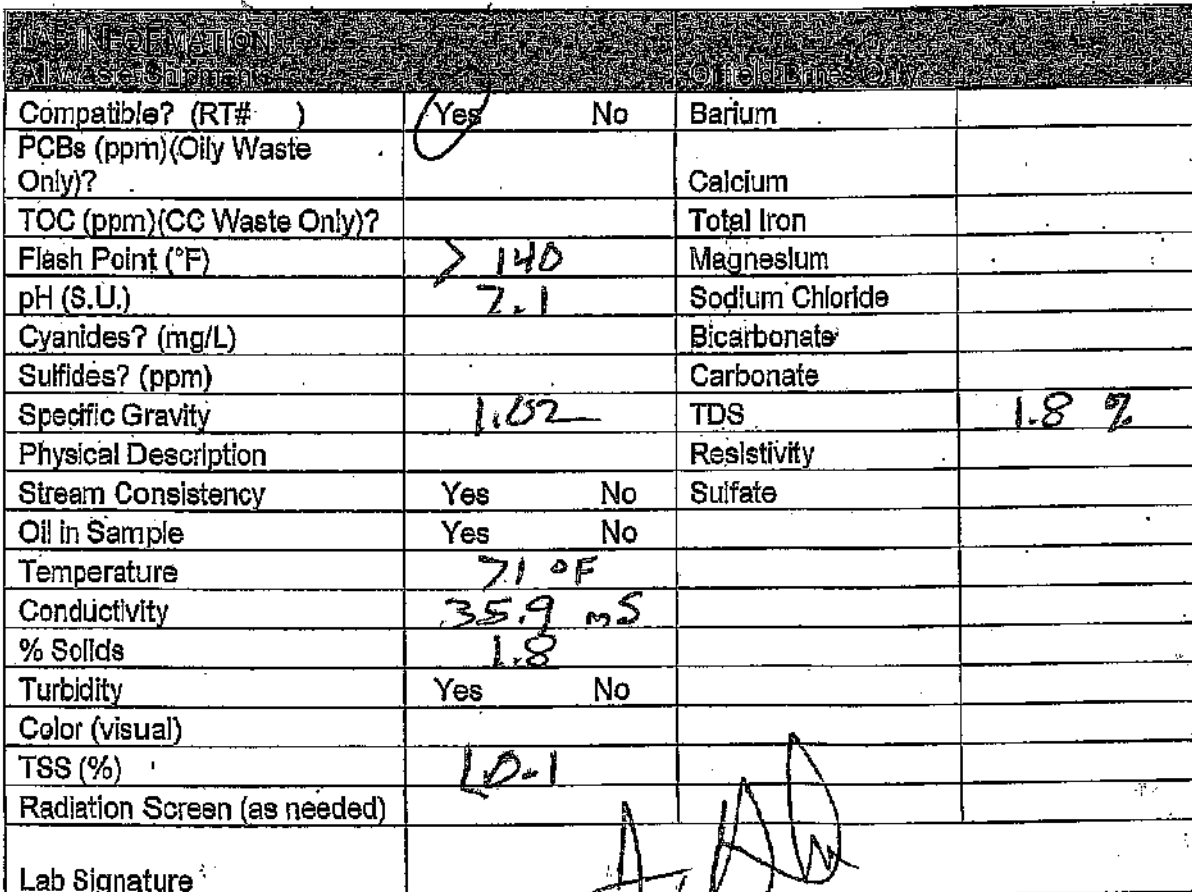 LAB INFORMATION
All Waste Shipments Oilfield Brines Only
Compatible? (RT# ) Yes No Barium
PCBs (ppm)(Oily Waste
Only)? Calcium
TOC (ppm)(CC Waste Only)? Total Iron
Flash Point (°F) > 140 Magnesium
pH (S.U.) 7.1 Sodium Chloride
Cyanides? (mg/L) Bicarbonate
Sulfides? (ppm) Carbonate
Specific Gravity 1.02 TDS 1.8 %
Physical Description Resistivity
Stream Consistency Yes No Sulfate
Oil in Sample Yes No
Temperature 71 °F
Conductivity 35.9 mS
% Solids 1.8
Turbidity Yes No
Color (visual)
TSS (%) <0.1
Radiation Screen (as needed)
Lab Signature